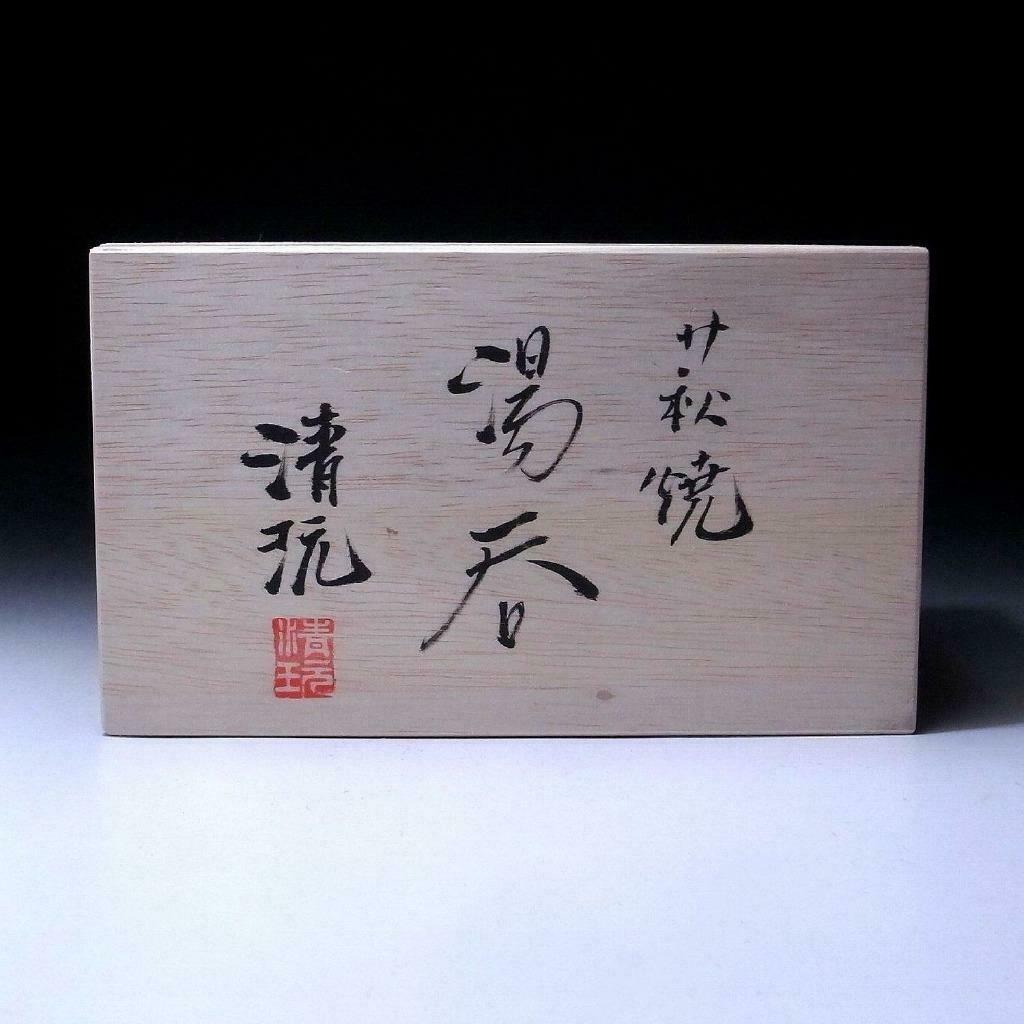 萩焼
湯呑
清玩
清玩